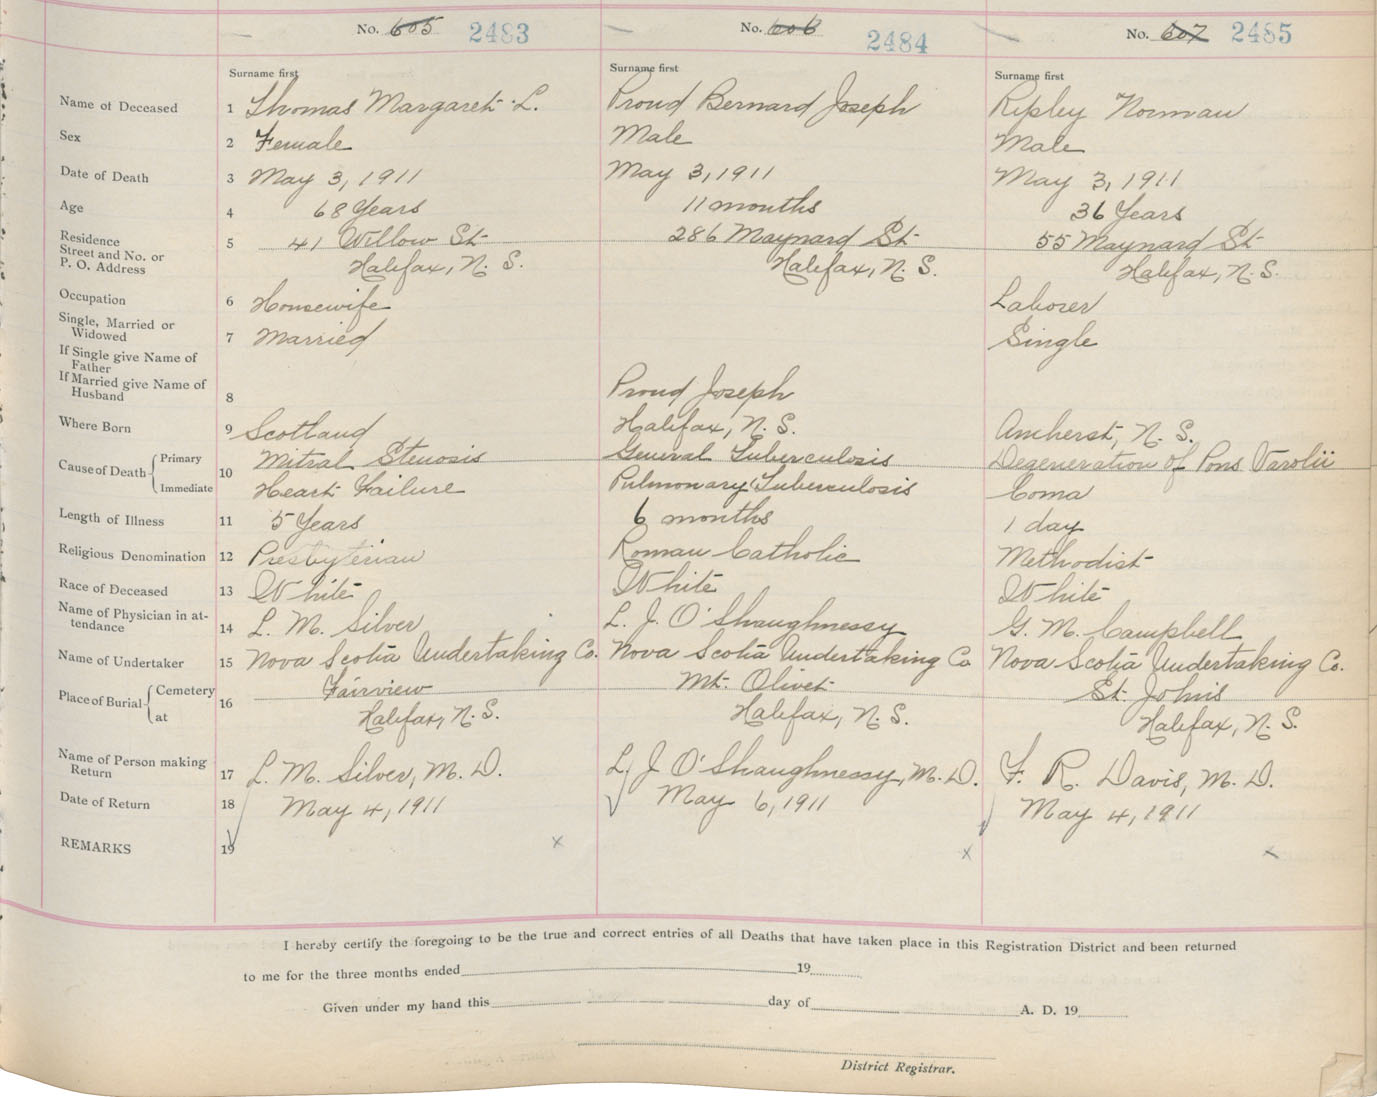 No. 605 2483
No. 606 2484
No. 607 2485
Surname first
Surname first
Surname first
Name of Deceased 1 Thomas Margaret L. Proud Bernard Joseph Ripley Norman
Sex 2 Female Male Male
Date of Death 3 May 3, 1911 May 3, 1911 May 3, 1911
Age 4 68 Years 11 months 36 Years
Residence 5 41 Willow St 286 Maynard St 55 Maynard St
Street and No. or
P. O. Address Halifax, N. S. Halifax, N. S. Halifax, N. S.
Occupation 6 Housewife Laborer
Single, Married or
Widowed 7 Married Single
If Single give Name of
Father
If Married give Name of
Husband 8 Proud Joseph
Where Born 9 Scotland Halifax, N. S. Amherst, N. S.
Cause of Death Primary 10 Mitral Stenosis General Tuberculosis Degeneration of Pons Varolii
Immediate Heart Failure Pulmonary Tuberculosis Coma
Length of Illness 11 5 Years 6 months 1 day
Religious Denomination 12 Presbyterian Roman Catholic Methodist
Race of Deceased 13 White White White
Name of Physician in at-
tendance 14 L. M. Silver L. J. O'Shaughnessy G. M. Campbell
Name of Undertaker 15 Nova Scotia Undertaking Co. Nova Scotia Undertaking Co Nova Scotia Undertaking Co.
Place of Burial Cemetery 16 Fairview Mt. Olivet St. John's
at Halifax, N. S. Halifax, N. S. Halifax, N. S.
Name of Person making
Return 17 L. M. Silver, M. D. L. J O'Shaughnessy, M. D. F. R. Davis, M. D.
Date of Return 18 May 4, 1911 May 6, 1911 May 4, 1911
REMARKS 19 x x x
I hereby certify the foregoing to be the true and correct entries of all Deaths that have taken place in this Registration District and been returned
to me for the three months ended 19
Given under my hand this day of A. D. 19
District Registrar.